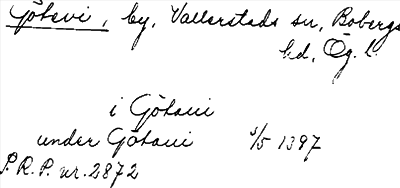 Götevi, by, Vallerstads sn, Bobergs
hd, Ög. l.
i Götaui
under Götaui 5/5 1397
S.R.P. nr. 2872